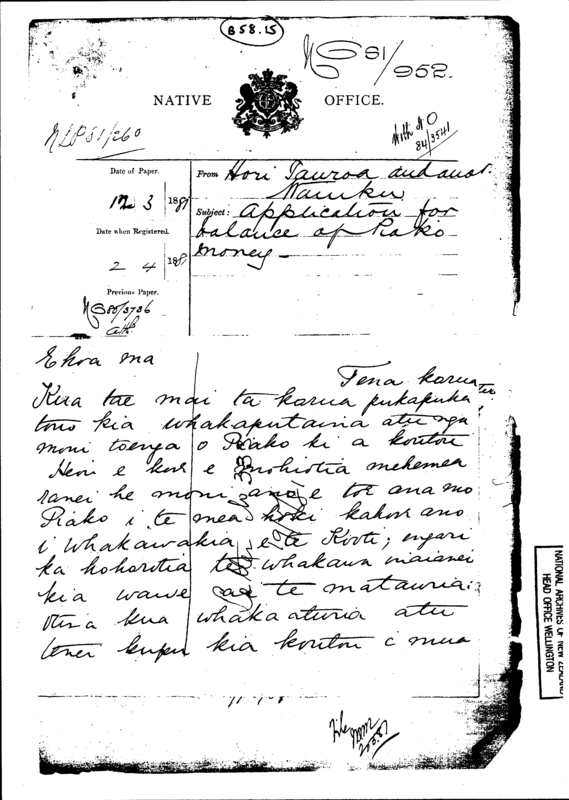 B58.15
NO 81/952.
NATIVE OFFICE.
NLP81/260
With NO
84/3541
Date of Paper.
12 3 1881
From Hori Tauroa and anor.
Waiuku
Subject: Application for
balance of Piako
money
Date when Registered.
2 4 1881
Previous Paper.
NO80/3736
E hoa ma
Tena korua
Kua tae mai ta korua pukapuka
tono kia whakaputaina atu nga
moni toenga o Piako ki a koutou
Heoi e kore e mohiotia mehemea
ranei he moni ano e toe ana mo
Piako i te mea hoki kahore ano
i whakawakia e te Kooti; engari
ka hohorotia te whakawa inaianei
kia wawe ai te matauria:
otira kua whakaaturia atu
tenei kupu kia koutou i mua
File
NATIONAL ARCHIVES OF NEW ZEALAND
HEAD OFFICE WELLINGTON